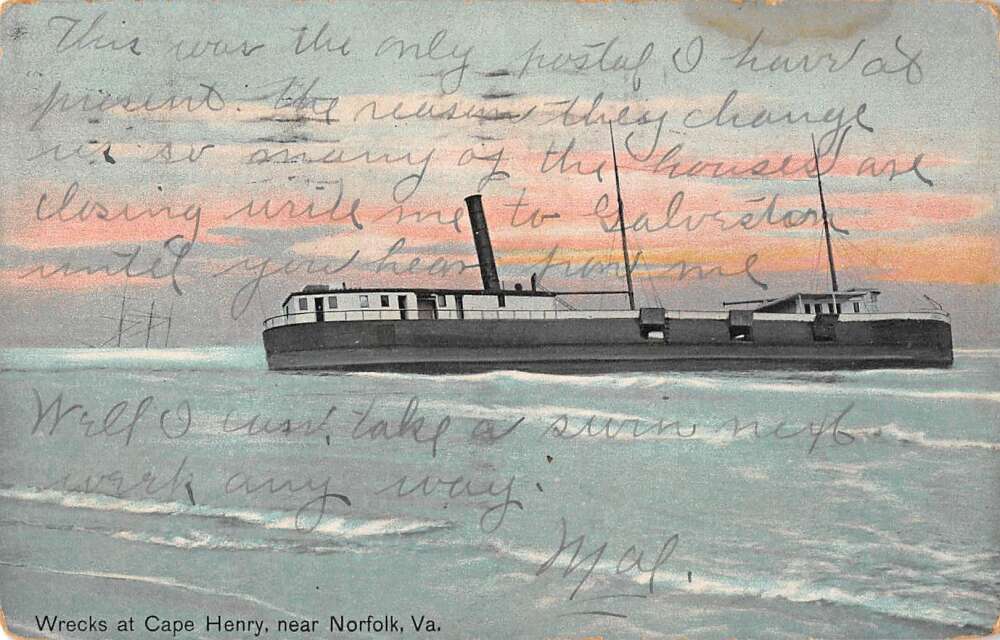 This was the only postal I have at
present. The reason they change
us so many of the houses are
closing write me to Galveston
until you hear from me
Well I can take a swim next
week any way.
Mae.
Wrecks at Cape Henry, near Norfolk, Va.